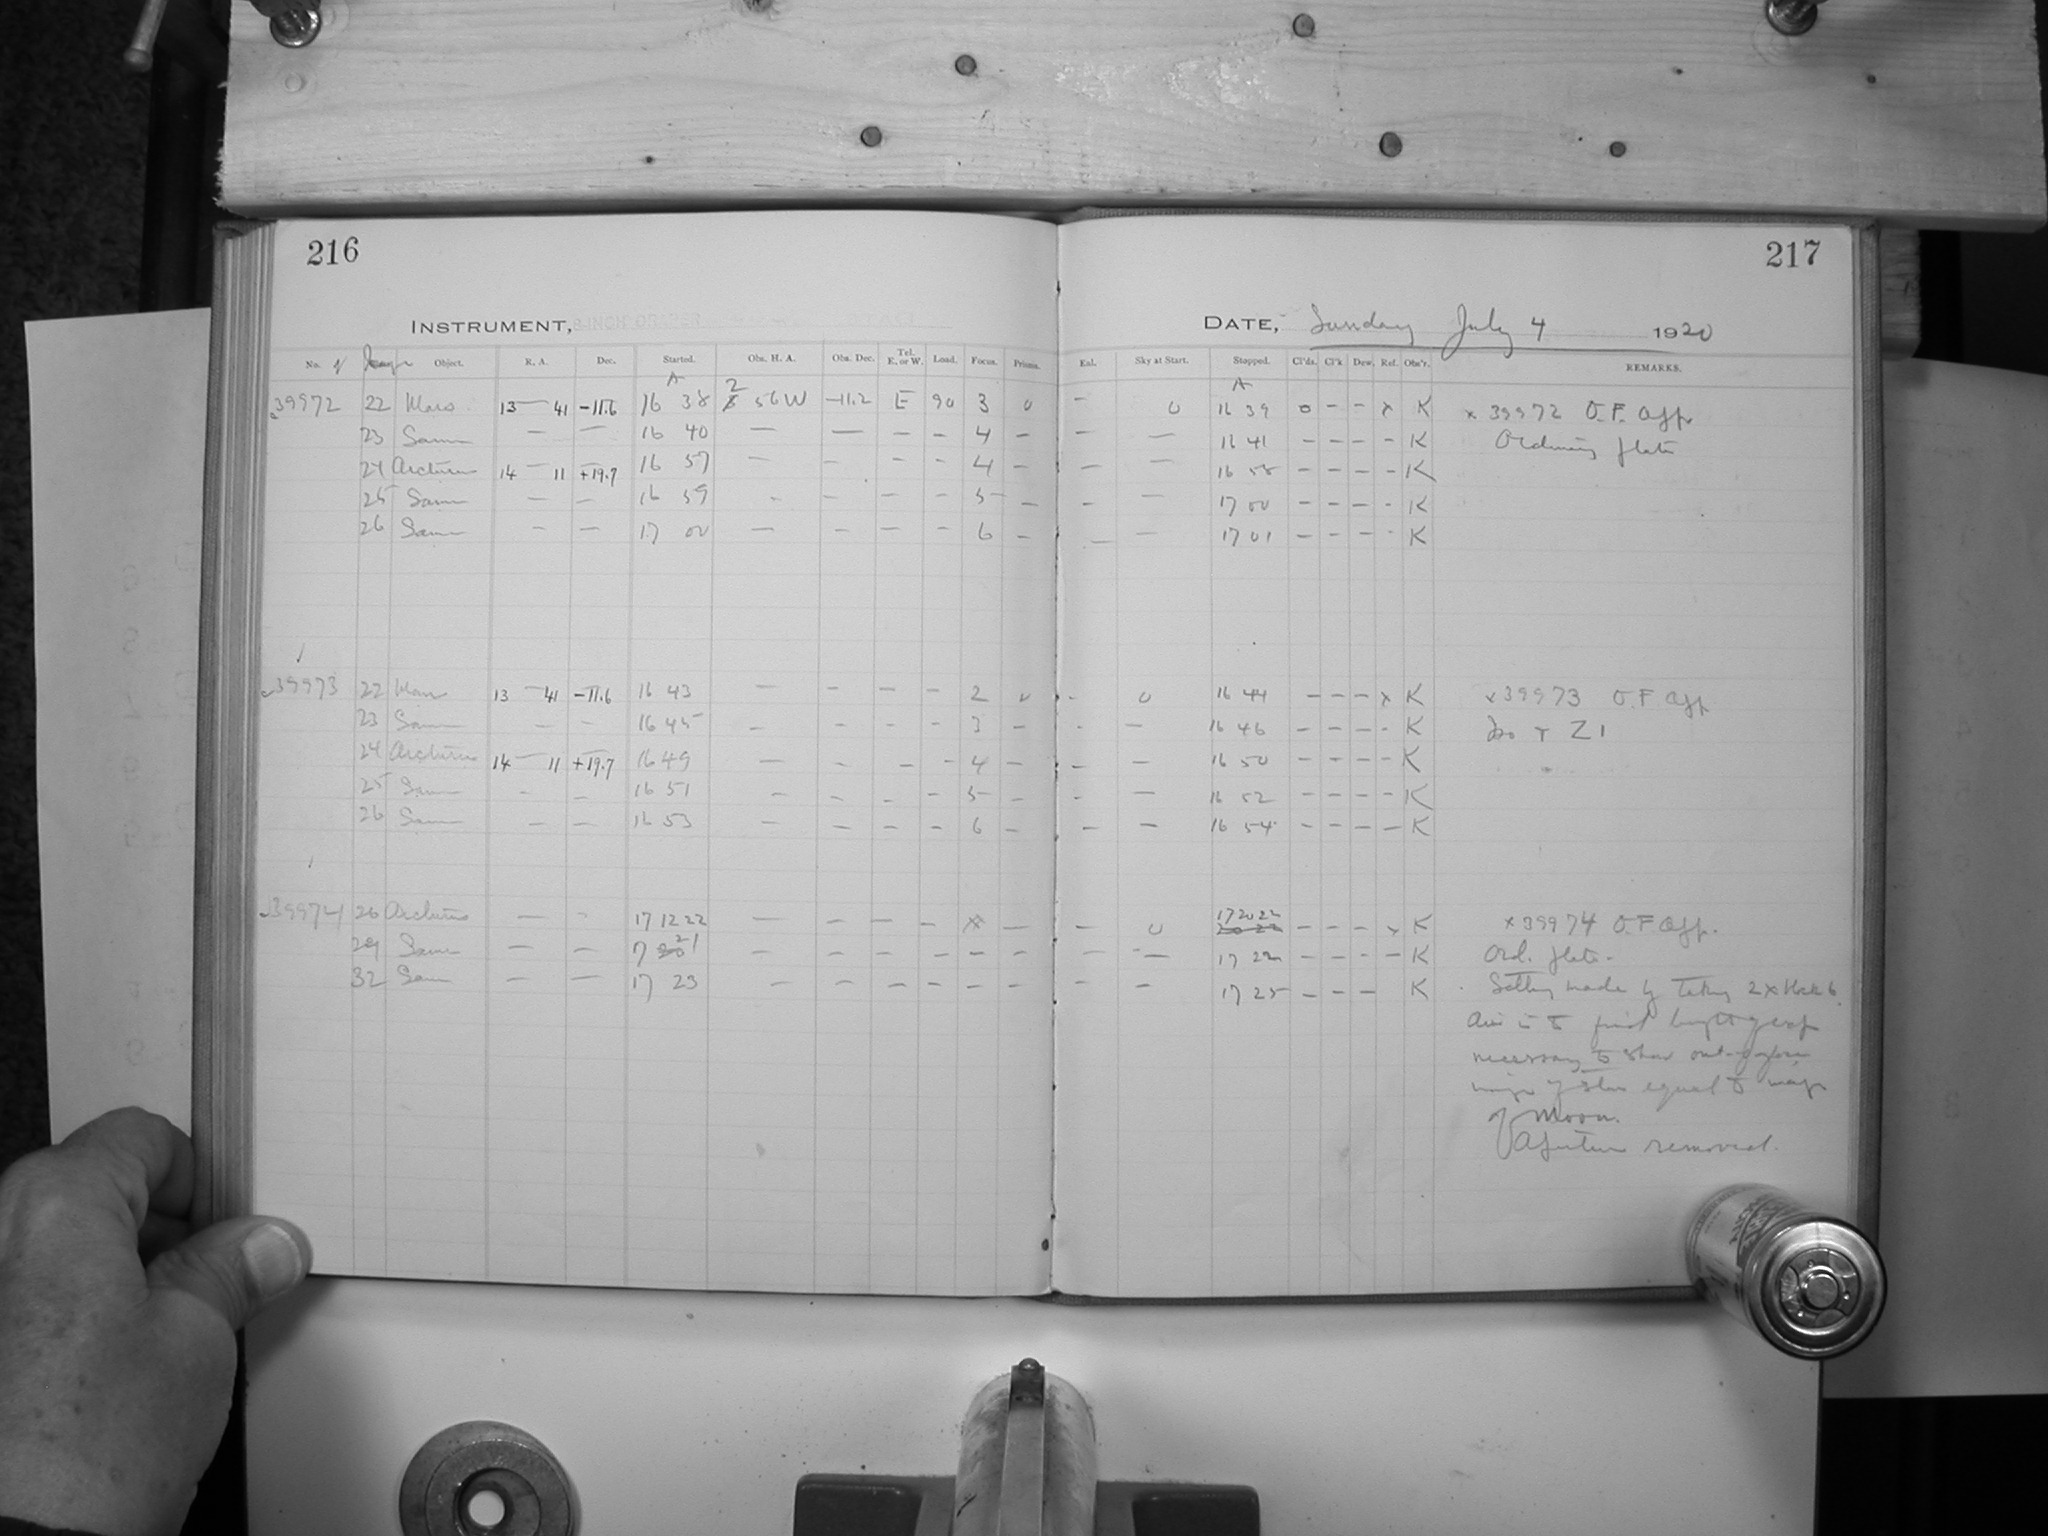 216
217
INSTRUMENT, 8-INCH DRAPER
DATE, Sunday July 4 1920
No. of Image Object. R. A. Dec. Started. Obs. H. A. Obs. Dec. Tel. E. or W. Load. Focus. Prisms. Enl. Sky at Start. Stopped. Cl'ds. Cl'k Dew. Ref. Obs'r. REMARKS.
A A
39972 22 Mars 13 — 41 -11.6 16 38 2 56 W -11.2 E 90 3 0 - 0 16 39 0 - - x K x 39972 O.F. App
23 Same — — 16 40 — — — - 4 - - — 16 41 - - - - K Ordinary plate
24 Arcturus 14 — 11 +19.7 16 57 — — - - 4 - - — 16 58 - - - - K
25 Same — — 16 59 - — - - 5 - - — 17 00 - - - - K
26 Same — — 17 00 — — - - 6 - - — 17 01 - - - - K
39973 22 Mars 13 — 41 -11.6 16 43 — — - - 2 0 - 0 16 44 - - - x K x 39973 O.F App
23 Same — — 16 45 — — - - 3 - - — 16 46 - - - - K Do + Z1
24 Arcturus 14 — 11 +19.7 16 49 — — - - 4 - - — 16 50 - - - - K
25 Same - - 16 51 — — - - 5 - - — 16 52 - - - - K
26 Same — — 16 53 — — - - 6 - - — 16 54 - - - - K
39974 26 Arcturus — - 17 12 22 — — — - x — - 0 17 20 22 - - - x K x 39974 O.F App.
29 Same — — 17 21 — — - - - - - — 17 22 - - - - K Ord. plate.
32 Same — — 17 23 — — - - - - - — 17 25 - - - K Setting made by taking 2 x
Aim is to find length of exp
necessary to show out-of-focus
image of star equal to image
of Moon.
Aperture removed.